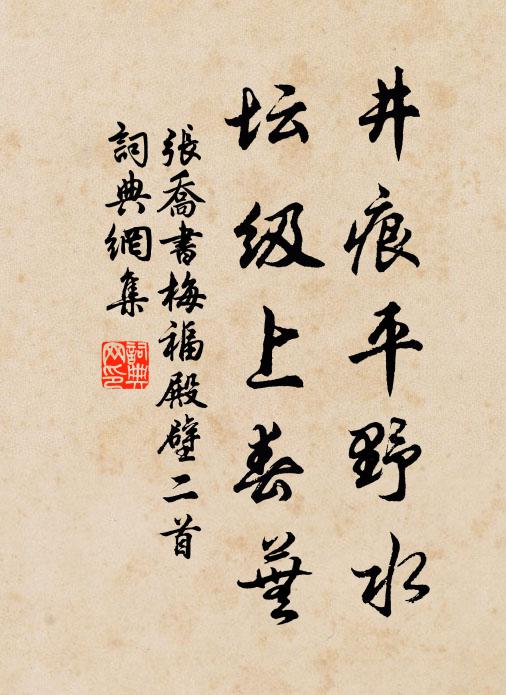 井痕平野水
坛级上春蕪
張喬書梅福殿壁二首
詞典網集
詞典網印